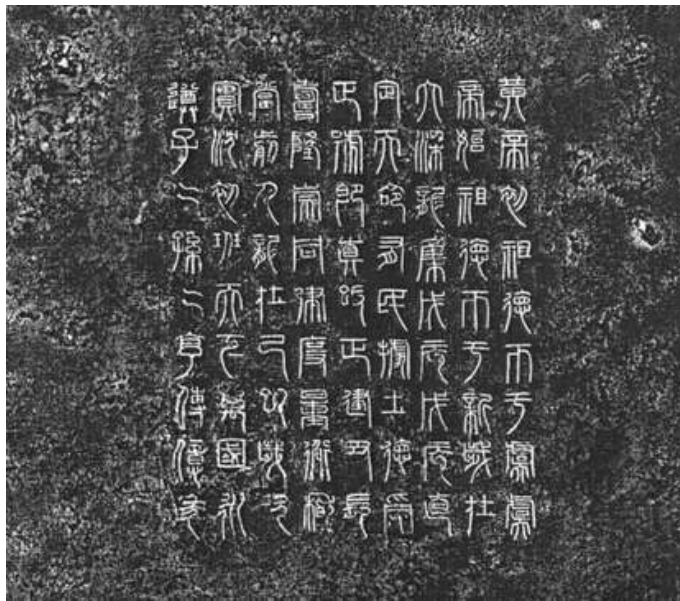 黃帝初祖德帀于虞虞
帝始祖德帀于新歲在
大梁龍集戊辰戊辰直
定天命有民據土德受
正號即真改正建丑長
壽隆崇同律度量衡稽
當前人龍在己巳歲次
實沈初班天下萬國永
遵子二孫二享傳億年